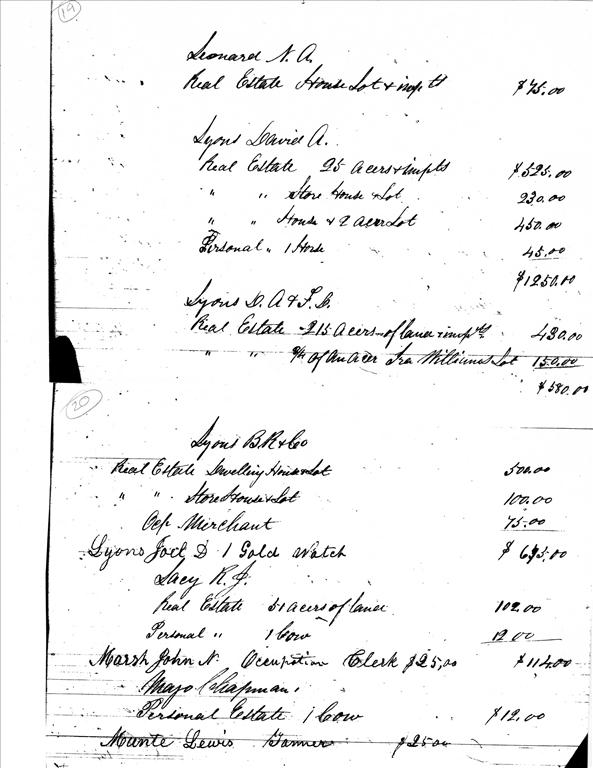 19
Leonard N. A.
Real Estate House Lot & imp ts $75.00
Lyons David A.
Real Estate 25 acers & impts $525.00
" " Store House & Lot 230.00
" " House & 2 acer Lot 450.00
Personal " 1 Horse 45.00
$1250.00
Lyons D. A & F. D.
Real Estate - 215 acers - of land & imp ts 430.00
" " 3/4 of an acer Ira Williams Lot 150.00
$580.00
20
Lyons B. R & Co
Real Estate Dwelling House & Lot 500.00
" " Store House & Lot 100.00
Ocp Merchant 75.00
Lyons Joel D 1 Gold Watch $675.00
Lacy R. J.
Real Estate 51 acers of land 102.00
Personal " 1 Cow 12.00
Marsh John N. Occupation Clerk $25,00 $114.00
Mayo Chapman.
Personal Estate 1 Cow $12.00
Lewis $25.00